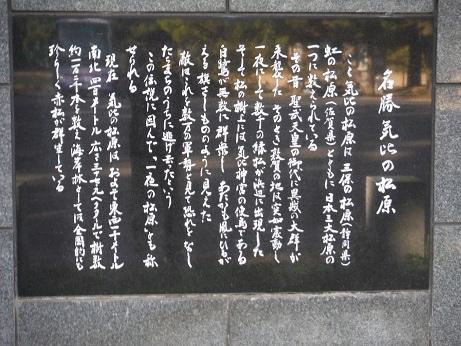 名勝 気比の松原
ここ気比の松原は 三保の松原(静岡県)
虹の松原(佐賀県)とともに 日本三大松原の
一つに数えられている
その昔 聖武天皇の御代に異賊の大群が
来襲した そのとき敦賀の地は突如震動し
一夜にして数千の緑松が浜辺に出現した
そして松の樹上には 気比神宮の使鳥である
白鷺が無数に群衆し あたかも風にひるが
える旗さしもののように見えた
敵はこれを数万の軍勢と見て恐れをなし
たちまちのうちに逃げ去ったという
この伝説に因んで 一夜の松原 とも称
せられる
現在 気比の松原は およそ東西一千メートル
南北四百メートル 広さ三十七ヘクタールで 樹数
約一万
千本を数え 海岸林としては全国的にも
珍しく赤松が群生している